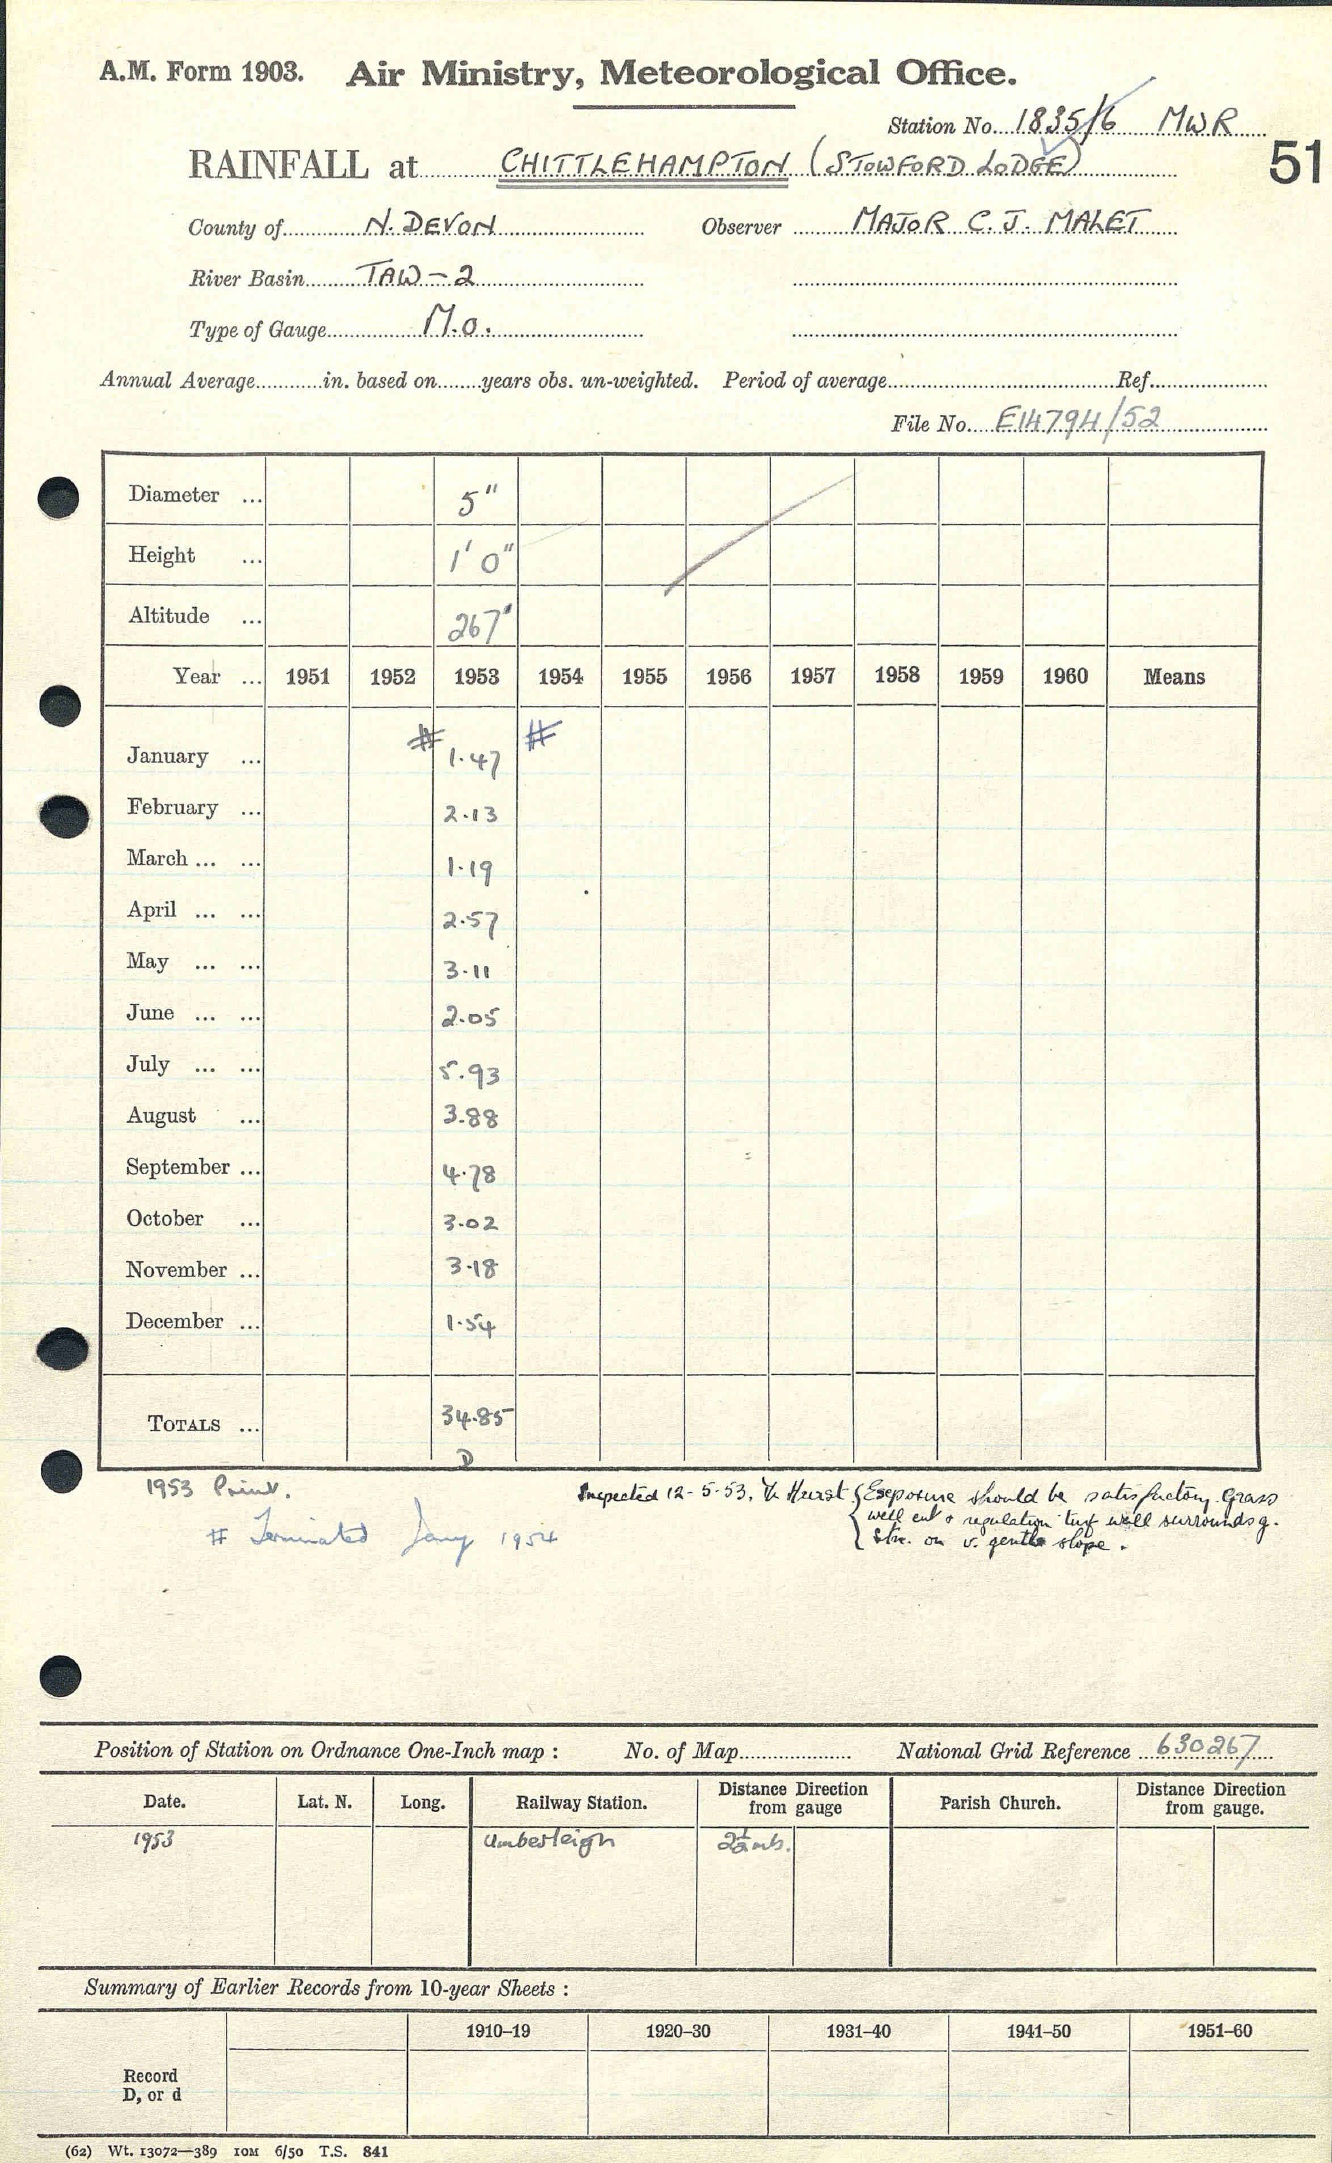 A.M. Form 1903. Air Ministry, Meteorological Office.
Station No. 1835/6 MWR
RAINFALL at CHITTLEHAMPTON (STOWFORD LODGE)
51
County of N. DEVON Observer MAJOR C. J. MALET
River Basin TAW-2
Type of Gauge M.O.
Annual Average in. based on years obs. un-weighted. Period of average Ref.
File No. E14794/52
Diameter ... 5"
Height ... 1' 0"
Altitude ... 267'
Year ... 1951 1952 1953 1954 1955 1956 1957 1958 1959 1960 Means
# #
January ... 1.47
February ... 2.13
March ... ... 1.19
April ... ... 2.57
May ... ... 3.11
June ... ... 2.05
July ... ... 5.93
August ... 3.88
September ... 4.78
October ... 3.02
November ... 3.18
December ... 1.54
TOTALS ... 34.85
D
1953 Print. Inspected 12-5-53. Hurst { Exposure should be satisfactory. Grass
well cut & regulation turf wall surrounds g.
# Terminated Jany 1954 Stn. on v. gentle slope.
Position of Station on Ordnance One-Inch map : No. of Map National Grid Reference 630267
Date. Lat. N. Long. Railway Station. Distance Direction from gauge Parish Church. Distance Direction from gauge.
1953 Umberleigh 2½ mls.
Summary of Earlier Records from 10-year Sheets :
1910–19 1920–30 1931–40 1941–50 1951–60
Record
D, or d
(62) Wt. 13072—389 10M 6/50 T.S. 841